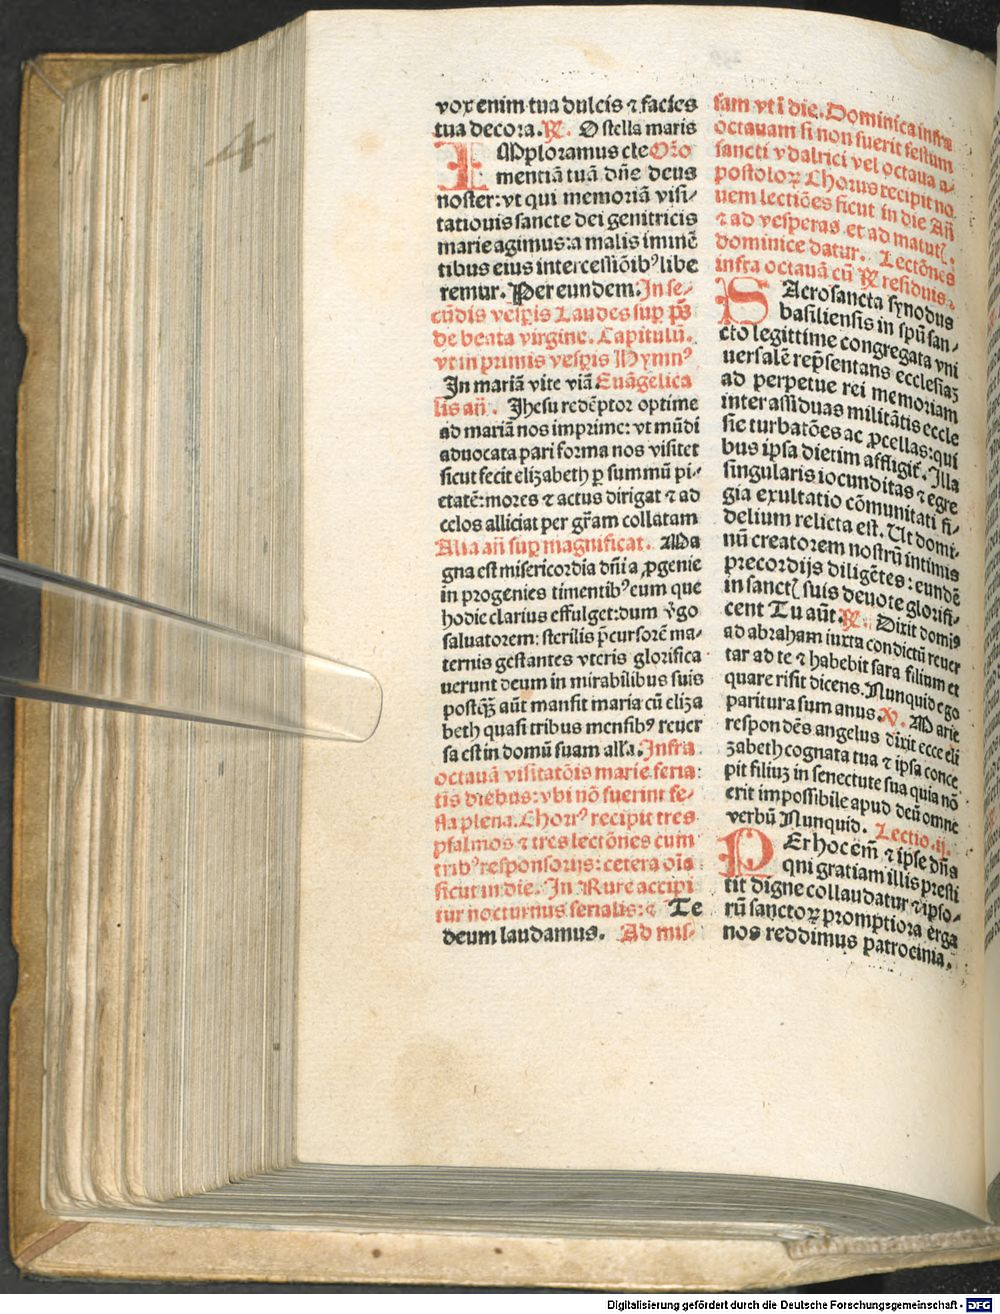 vox enim tua dulcis ⁊ facies
tua decora. ℟. O stella maris
IMploramus cle Oro
mentiā tuā dn̄e deus
noster: vt qui memoriā visi-
tatiouis sancte dei genitricis
marie agimus: a malis iminē
tibus eius intercessiōibꝰ libe
remur. Per eundem. In se-
cūdis vesꝑis Laudes suꝑ ps̄
de beata virgine. Capitulū.
vt in primis vesꝑis Hymnꝰ
In mariā vite viā Euāgelica
lis an̄. Jhesu redēptor optime
ad mariā nos imprime: vt mūdi
aduocata pari forma nos visitet
sicut fecit elizabeth ꝑ summū pi-
etatē: mores ⁊ actus dirigat ⁊ ad
celos alliciat per grām collatam
Alia an̄ suꝑ magnificat. Ma
gna est misericordia dn̄i a ꝓgenie
in progenies timentibꝰ eum que
hodie clarius effulget: dum v̄go
saluatorem: sterilis p̄cursorē ma-
ternis gestantes vteris glorifica
uerunt deum in mirabilibus suis
postq̄ꝫ aūt mansit maria cū eliza
beth quasi tribus mensibꝰ reuer
sa est in domū suam all'a. Infra
octauā visitatōis marie feria-
tis diebus: vbi nō fuerint fe-
sta plena. Chorꝰ recipit tres
psalmos ⁊ tres lectōnes cum
tribꝰ responsorijs: cetera oīa
sicut in die. In Rure accipi
tur nocturnus ferialis: ⁊ Te
deum laudamus. Ad mis-
sam vt ī die. Dominica infra
octauam si non fuerit festum
sancti vdalrici vel octaua a-
postoloꝝ Chorus recipit no
uem lectiōes sicut in die An̄
⁊ ad vesperas et ad matut.
dominice datur. Lectōnes
infra octauā cū ℟ residuis.
SAcrosancta synodus
basiliensis in spū san-
cto legittime congregata vni
uersalē rep̄sentans ecclesiaꝫ
ad perpetue rei memoriam
inter assiduas militātis eccle
sie turbatōes ac ꝓcellas: qui
bus ipsa dietim affligit. Illa
singularis iocunditas ⁊ egre
gia exultatio cōmunitati fi-
delium relicta est. Ut domi-
nū creatorem nostrū intimis
precordijs diligētes: eundē
in sanct suis deuote glorifi-
cent Tu aūt. ℟. Dixit domis
ad abraham iuxta condictū reuer
tar ad te ⁊ habebit sara filium et
quare risit dicens. Nunquid ego
paritura sum anus. ℣. Marie
respondēs angelus dixit ecce eli
zabeth cognata tua ⁊ ipsa conce
pit filiuꝫ in senectute sua quia nō
erit impossibile apud deū omne
verbū Nunquid. Lectio .ij.
PEr hoc em̄ ⁊ ipse dn̄s
qni gratiam illis presti
tit digne collaudatur ⁊ ipso-
rū sanctoꝝ promptiora erga
nos reddimus patrocinia.
4
Digitalisierung gefördert durch die Deutsche Forschungsgemeinschaft - DFG